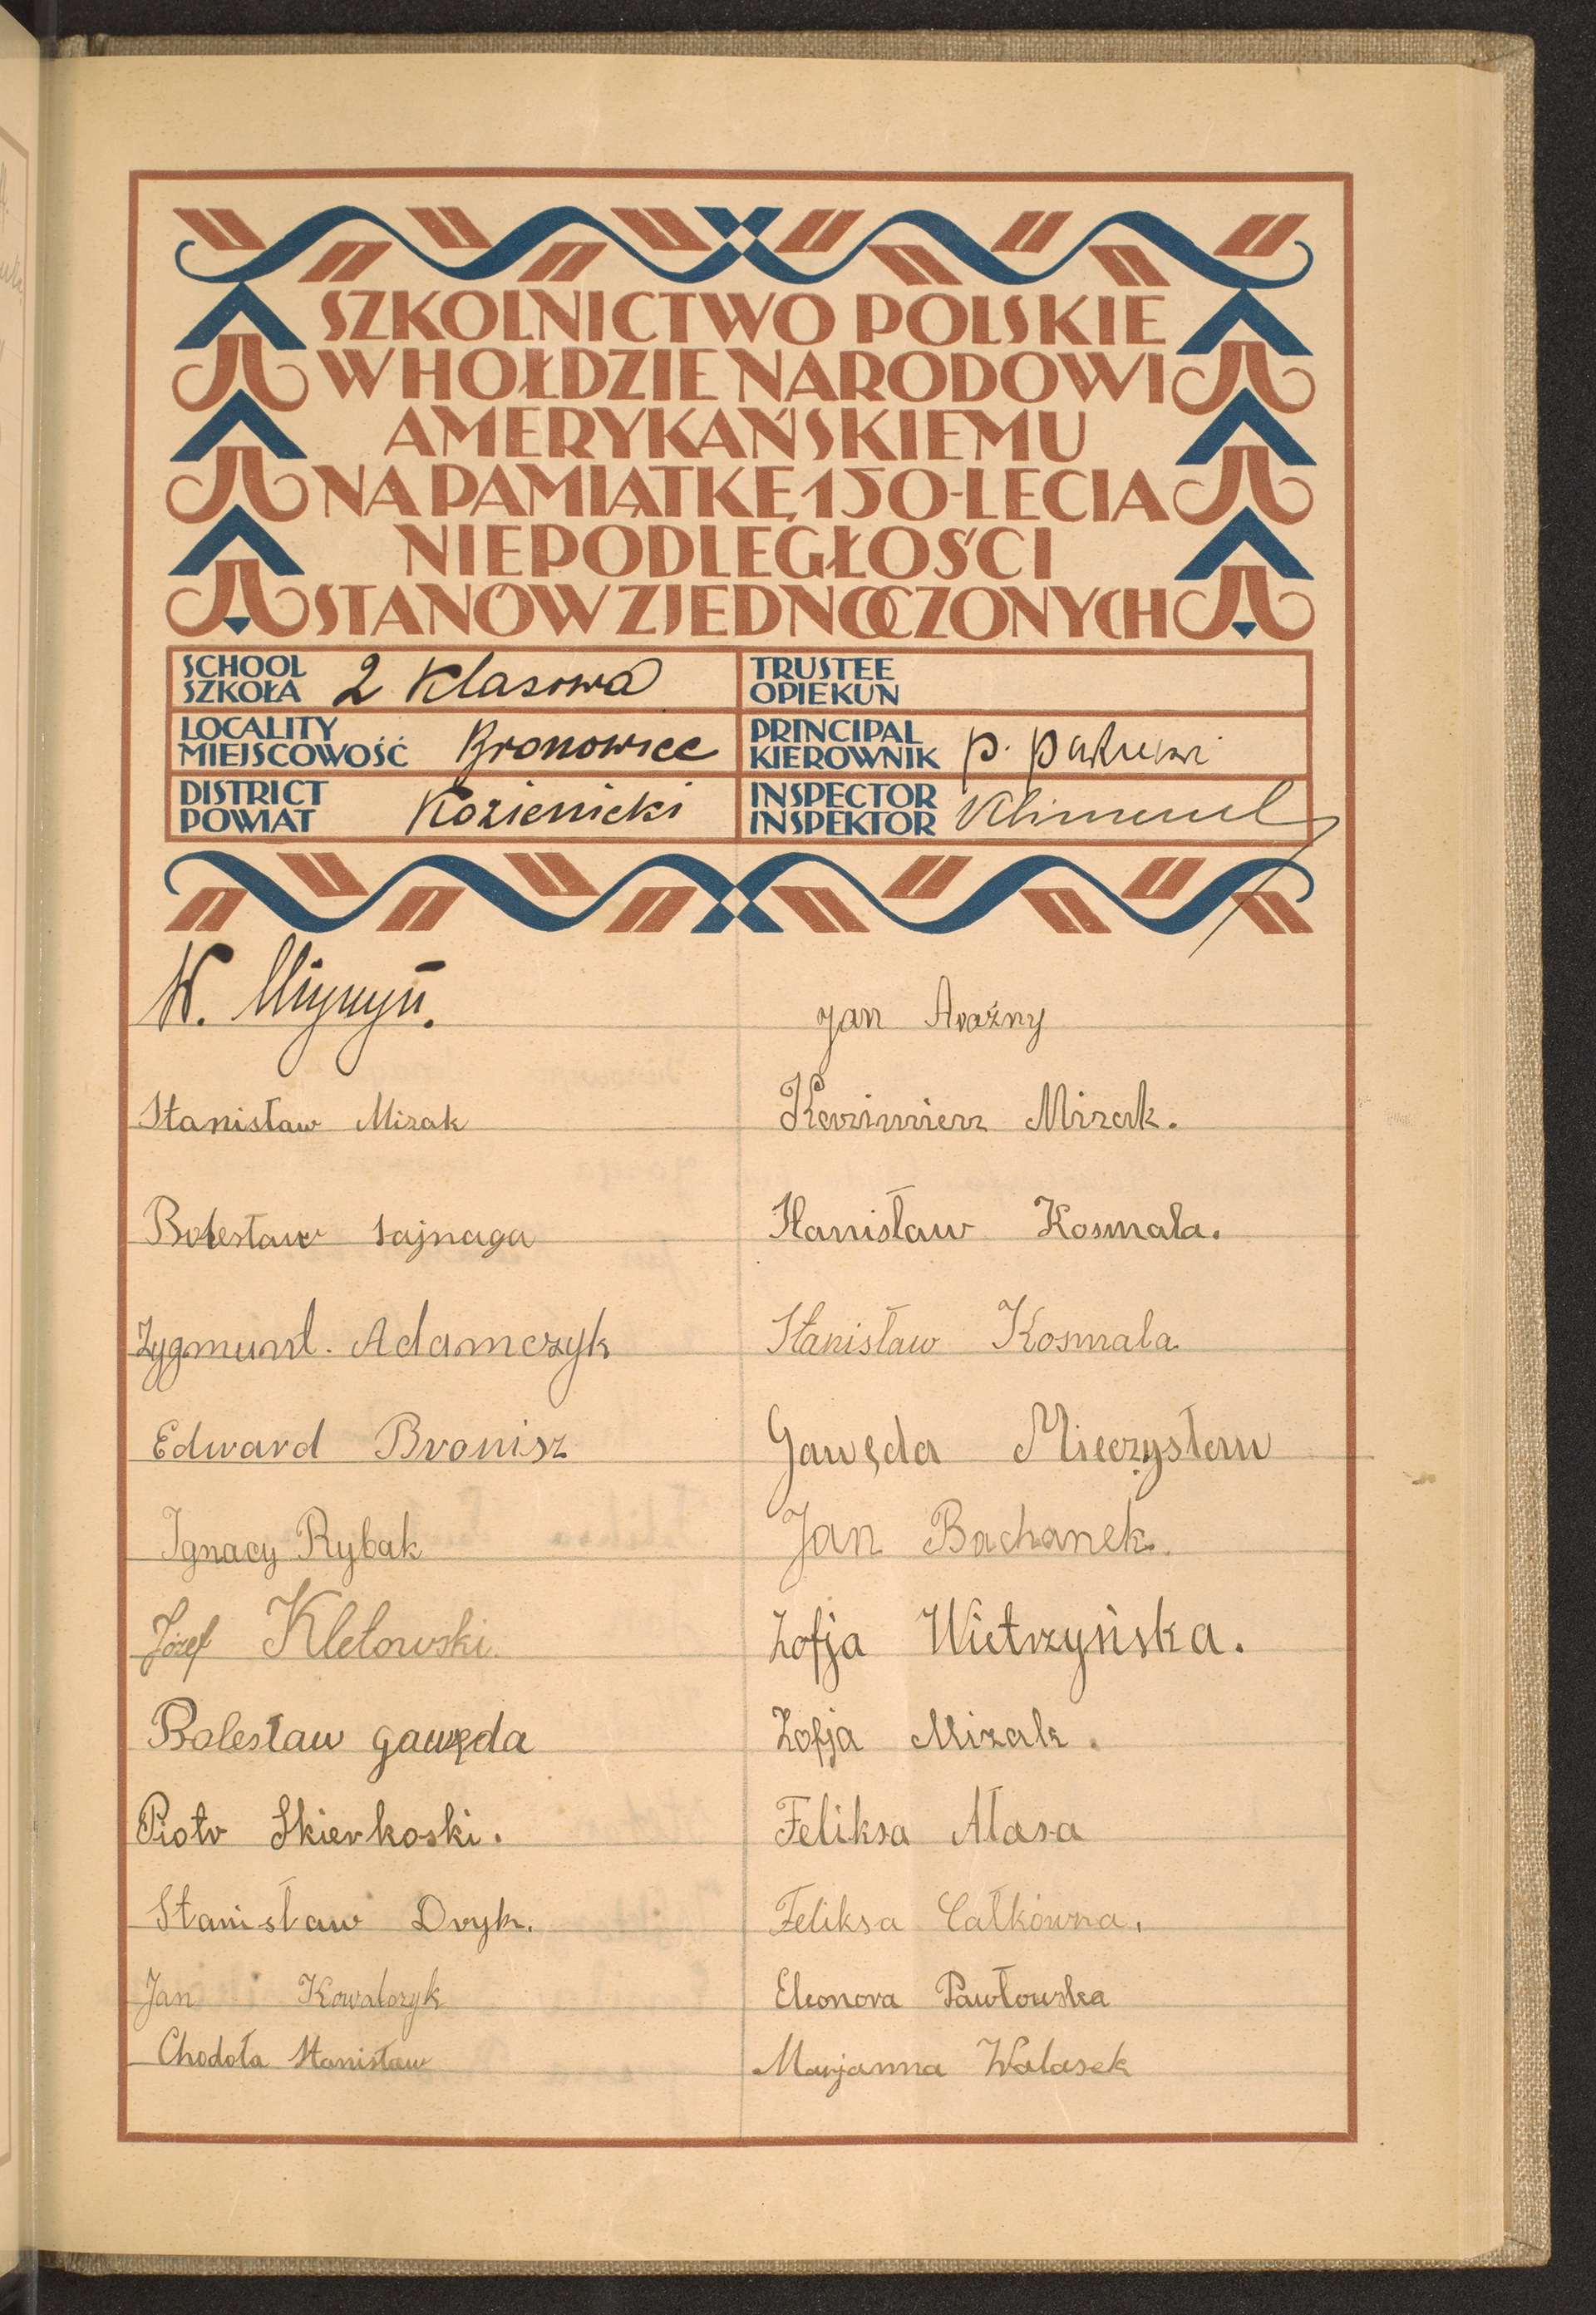 SZKOLNICTWO POLSKIE
W HOŁDZIE NARODOWI
AMERYKAŃSKIEMU
NA PAMIĄTKĘ 150-LECIA
NIEPODLEGŁOŚCI
STANÓW ZJEDNOCZONYCH
SCHOOL
SZKOŁA 2 Klasowa
TRUSTEE
OPIEKUN
LOCALITY
MIEJSCOWOŚĆ Bronowice
PRINCIPAL
KIEROWNIK P.
DISTRICT
POWIAT Kozienicki
INSPECTOR
INSPEKTOR
W.
Stanisław Mizak
Bolesław Sajnaga
Zygmunt. Adamczyk
Edward Bronisz
Ignacy Rybak
Józef Kletowski.
Bolesław gawęda
Piotr Skierkoski.
Stanisław Dryk.
Jan Kowalczyk
Chodoła Stanisław
Jan
Kazimierz Mizak.
Stanisław Kosmala.
Stanisław Kosmala
Gawęda Mieczysław
Jan Bachanek.
Zofja Wietrzyńska.
Zofja Mizak.
Feliksa Ałasa
Feliksa Całkówna.
Eleonora Pawłowska
Marjanna Walasek